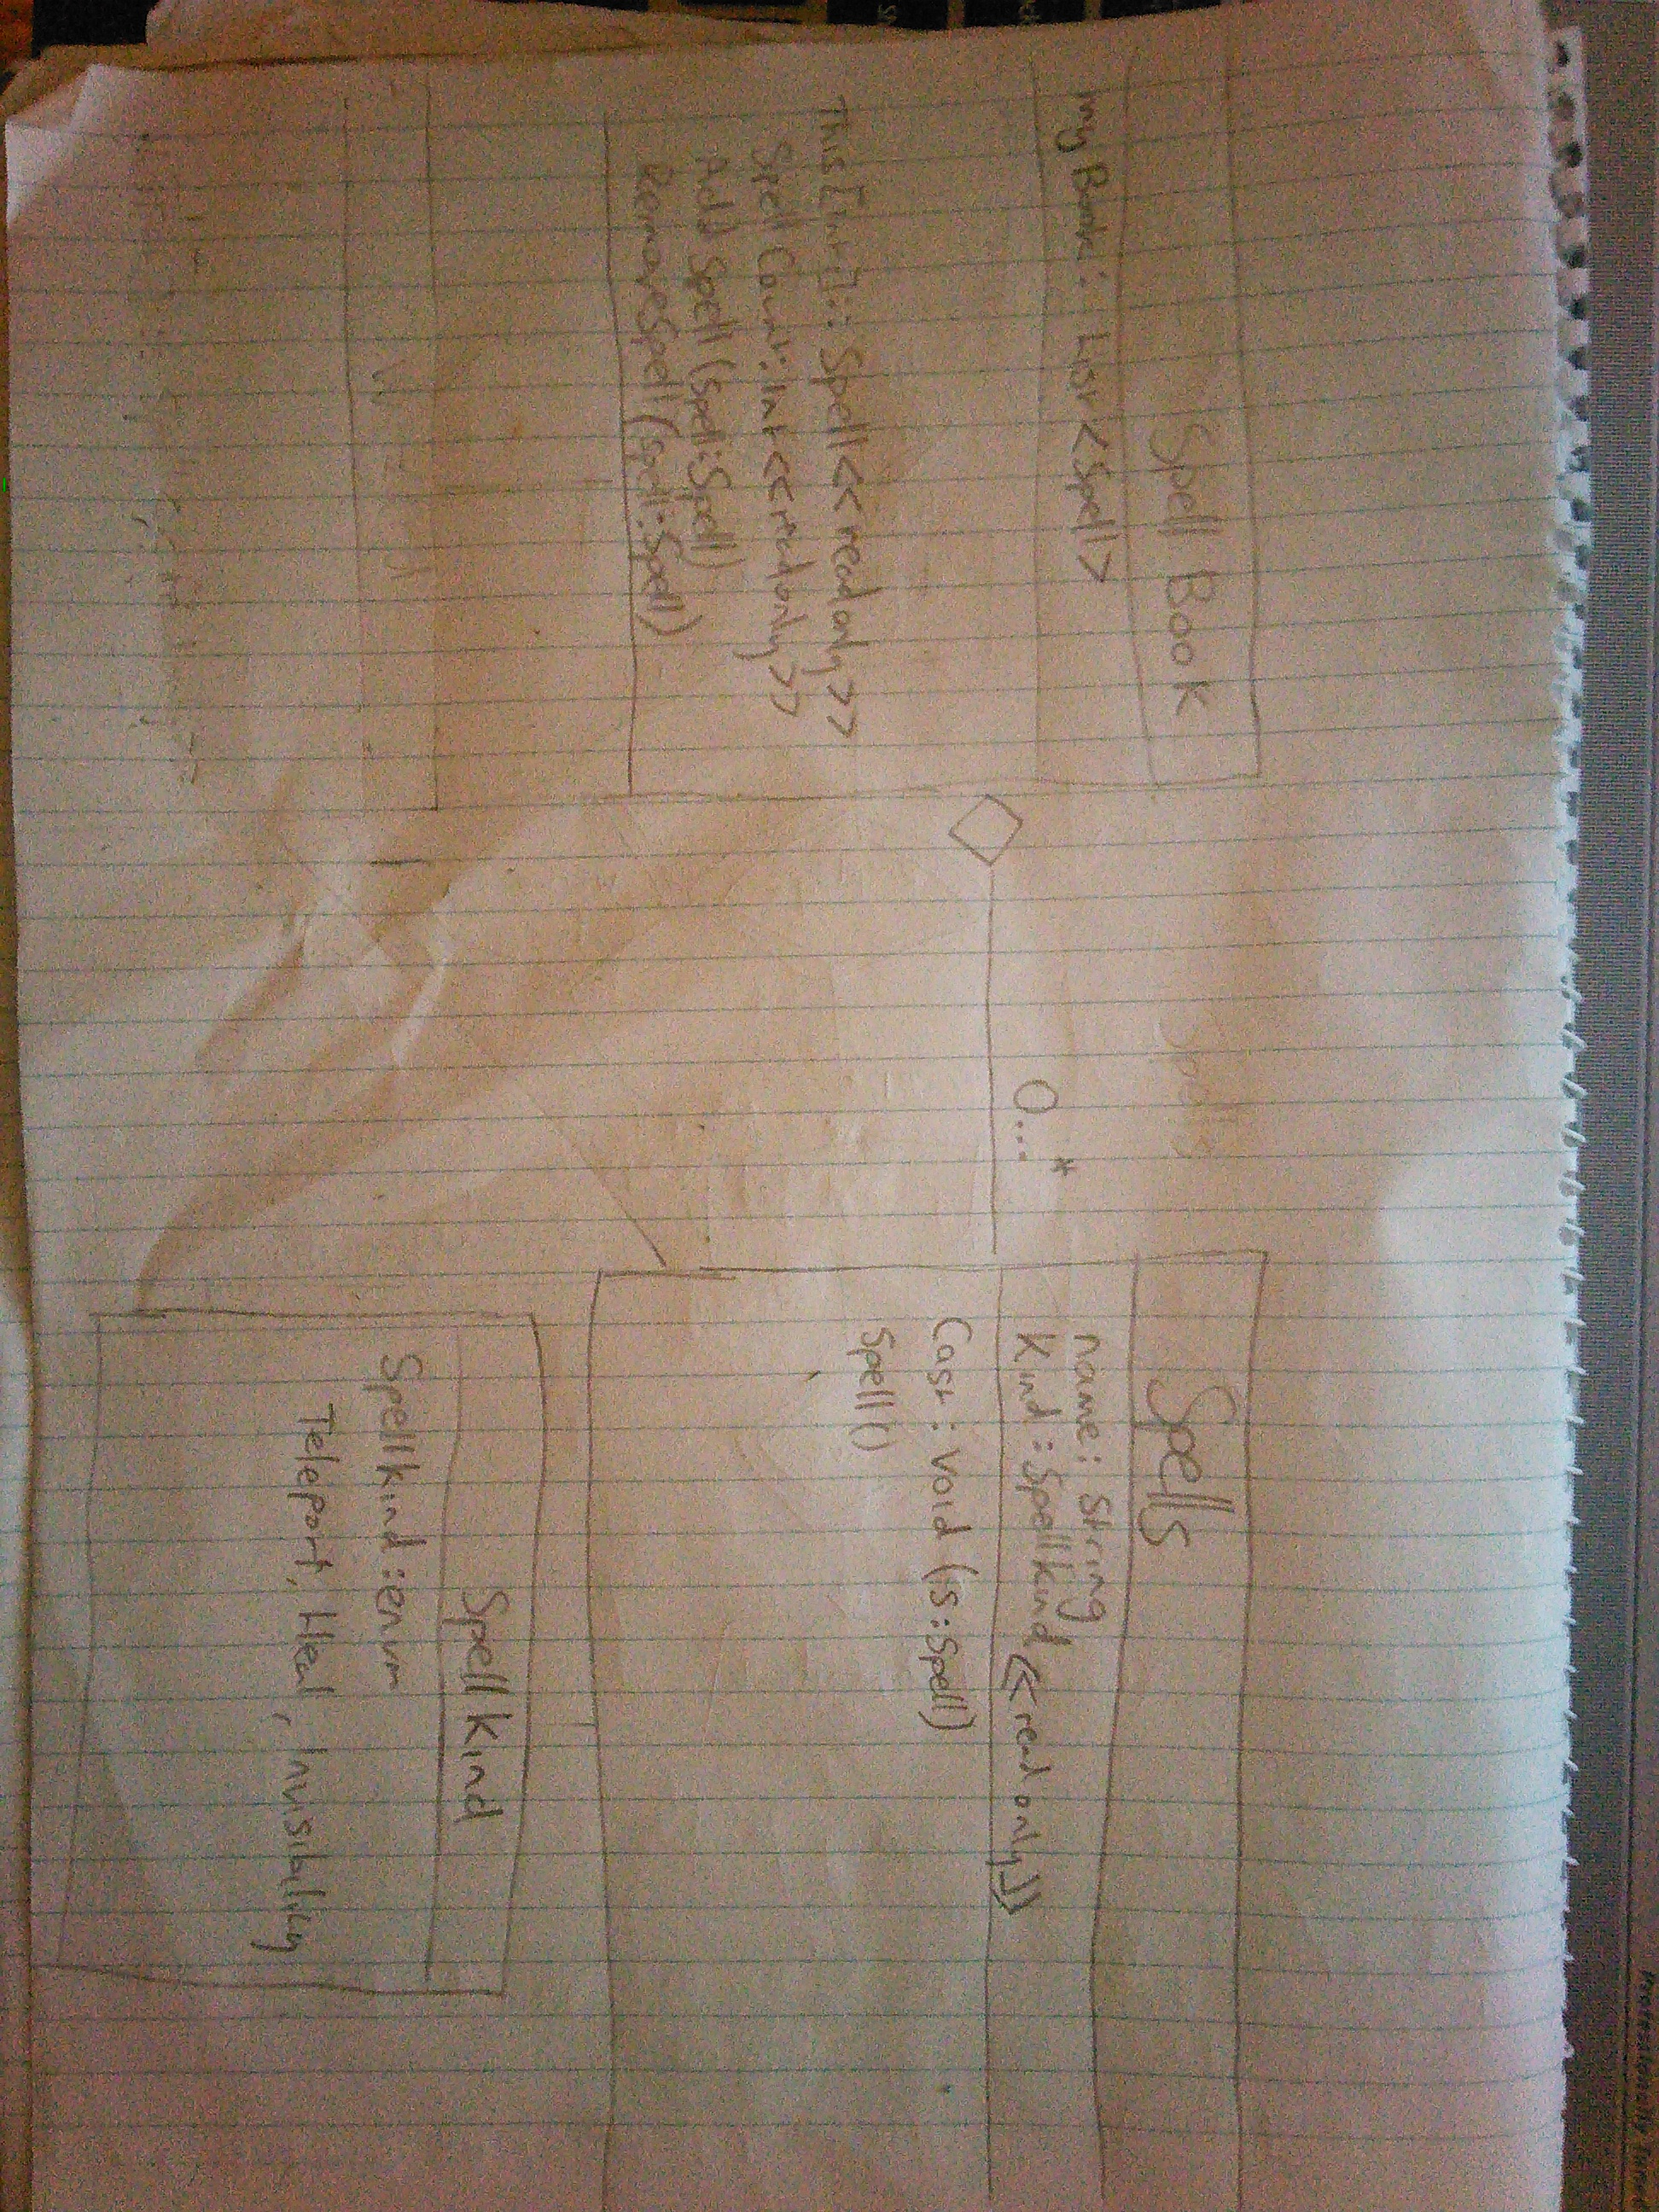 Spell Book
my Book: List<Spell>
This[int]: Spell<<read only>>
Spell Count: Int<<read only>>
Add Spell(spell:Spell)
RemoveSpell(spell:Spell)
0...*
Spells
name: String
Kind: SpellKind <<read only>>
Cast: void (s:Spell)
Spell()
Spell Kind
Spellkind:enum
Teleport, Heal, Invisibality